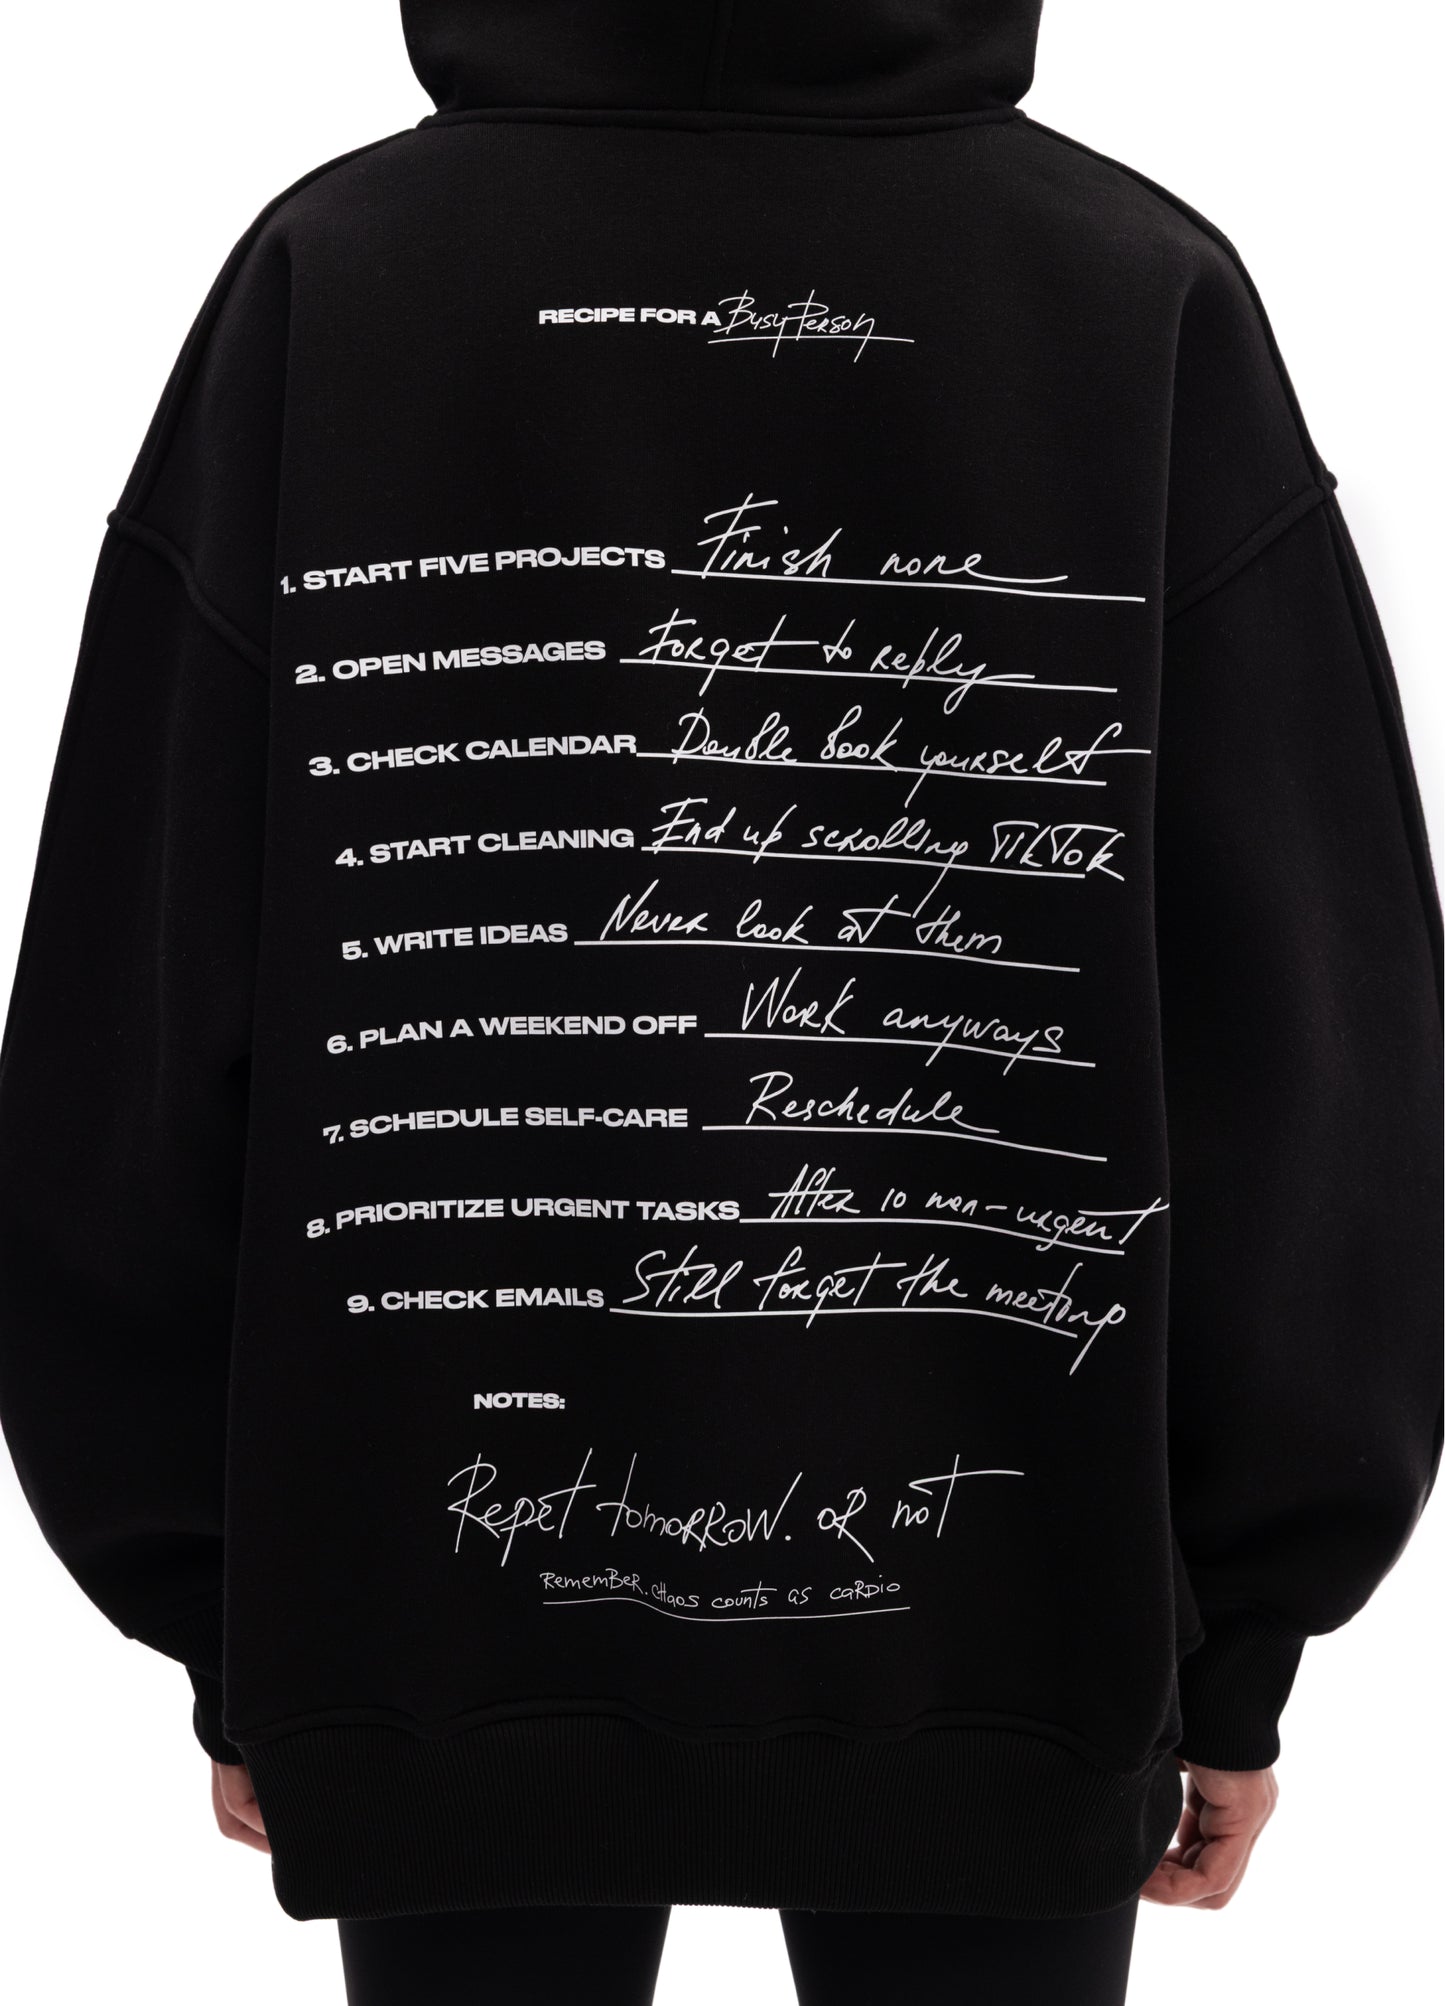 RECIPE FOR A Busy Person
1. START FIVE PROJECTS Finish none
2. OPEN MESSAGES Forget to reply
3. CHECK CALENDAR Double book yourself
4. START CLEANING End up scrolling TikTok
5. WRITE IDEAS Never look at them
6. PLAN A WEEKEND OFF Work anyways
7. SCHEDULE SELF-CARE Reschedule
8. PRIORITIZE URGENT TASKS After 10 non-urgent
9. CHECK EMAILS Still forget the meeting
NOTES:
Repet tomorrow. or not
Remember. chaos counts as cardio